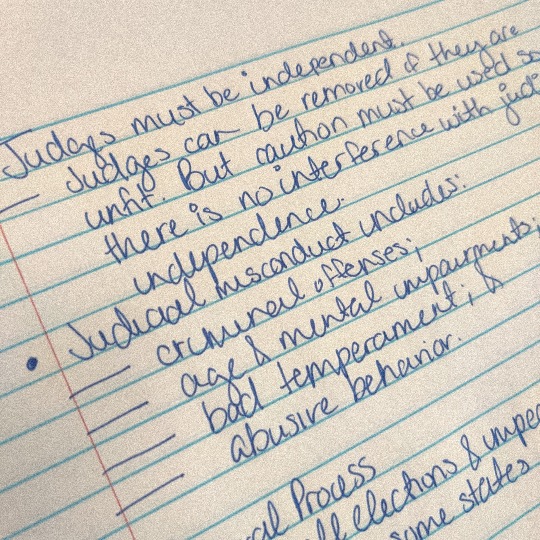 Judges must be independent.
— Judges can be removed if they are
unfit. But caution must be used so
there is no interference with
independence.
• Judicial misconduct includes:
— criminal offenses;
— age & mental impairments;
— bad temperament; &
— abusive behavior.
Process
elections &
some states